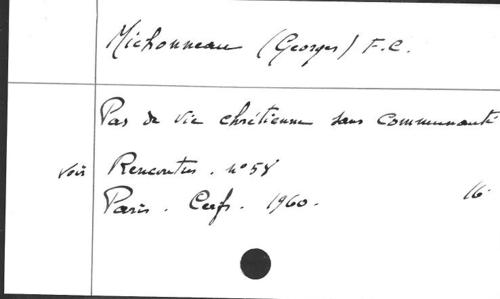 Michonneau (Georges) F.C.
Pas de vie chrétienne sans communauté
voir Rencontres. n° 58
Paris. Cerfs. 1960. 16